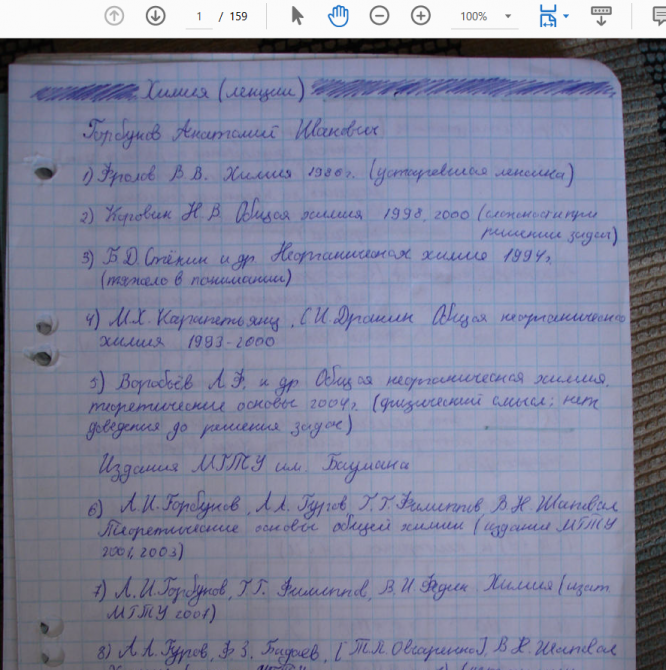 1 / 159 100%
Химия (лекции)
Горбунов Анатолий Иванович
1) Фролов В.В. Химия 1986г. (устаревшая лексика)
2) Коровин Н.В. Общая химия 1998, 2000 (сложности при
решении задач)
3) Б.Д. Стёпин и др. Неорганическая химия 1994г.
(тяжело в понимании)
4) М.Х. Карапетьянц, С.И. Дракин Общая неорганическая
химия 1993-2000
5) Воробьёв А.Ф. и др Общая неорганическая химия,
теоретические основы 2004г. (физический смысл; нет
доведения до решения задач)
Издания МГТУ им. Баумана
6) А.И. Горбунов, А.А. Гуров, Г.Г. Филиппов, В.Н. Шаповал
Теоретические основы общей химии (издания МГТУ
2001, 2003)
7) А.И. Горбунов, Г.Г. Филиппов, В.И. Федин Химия (издат.
МГТУ 2001)
8) А.А. Гуров, Ф.З. Бадаев, [Т.П. Овчаренко], В.Н. Шаповал